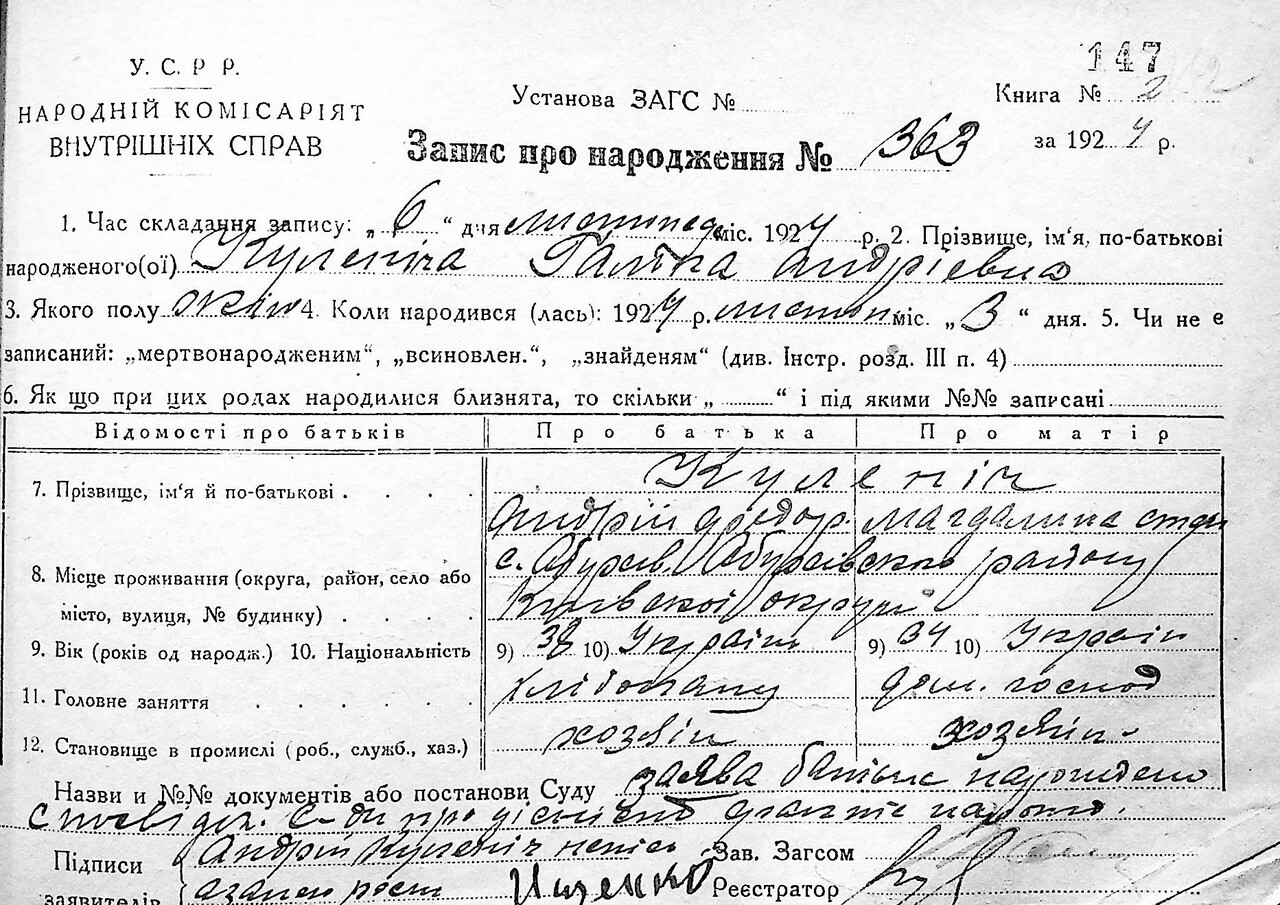 147
У. С. Р Р.
НАРОДНІЙ КОМІСАРІЯТ
ВНУТРІШНІХ СПРАВ
Установа ЗАГС №
Книга № 2
за 1924 р.
Запис про народження № 363
1. Час складання запису: „ 6 “ дня листопада міс. 1924 р. 2. Прізвище, ім‘я, по-батькові
народженого(ої) Куленіча Галіна Андріевна
3. Якого полу жін 4. Коли народився (лась): 1924 р. листоп міс. „ 3 “ дня. 5. Чи не є
записаний: „мертвонародженим“, „всиновлен.“, „знайденям“ (див. Інстр. розд. III п. 4)
6. Як що при цих родах народилися близнята, то скільки „ “ і під якими №№ записані
Відомості про батьків Про батька Про матір
7. Прізвище, ім‘я й по-батькові . . . . Куленіч
Андрій Федор. Магдалина
8. Місце проживання (округа, район, село або с. Обухів. Обухівського району
місто, вулиця, № будинку) . . . . Київської округи
9. Вік (років од народж.) 10. Національність 9) 38 10) Україн 9) 34 10) Україн
11. Головне заняття . . . . . . хлібопашц дом. господ
12. Становище в промислі (роб., служб., хаз.) хозяін хозяін.
Назви и №№ документів або постанови Суду заява батьк
Підписи Андрій Куленіч Зав. Загсом
заявителів Іщенко Реєстратор